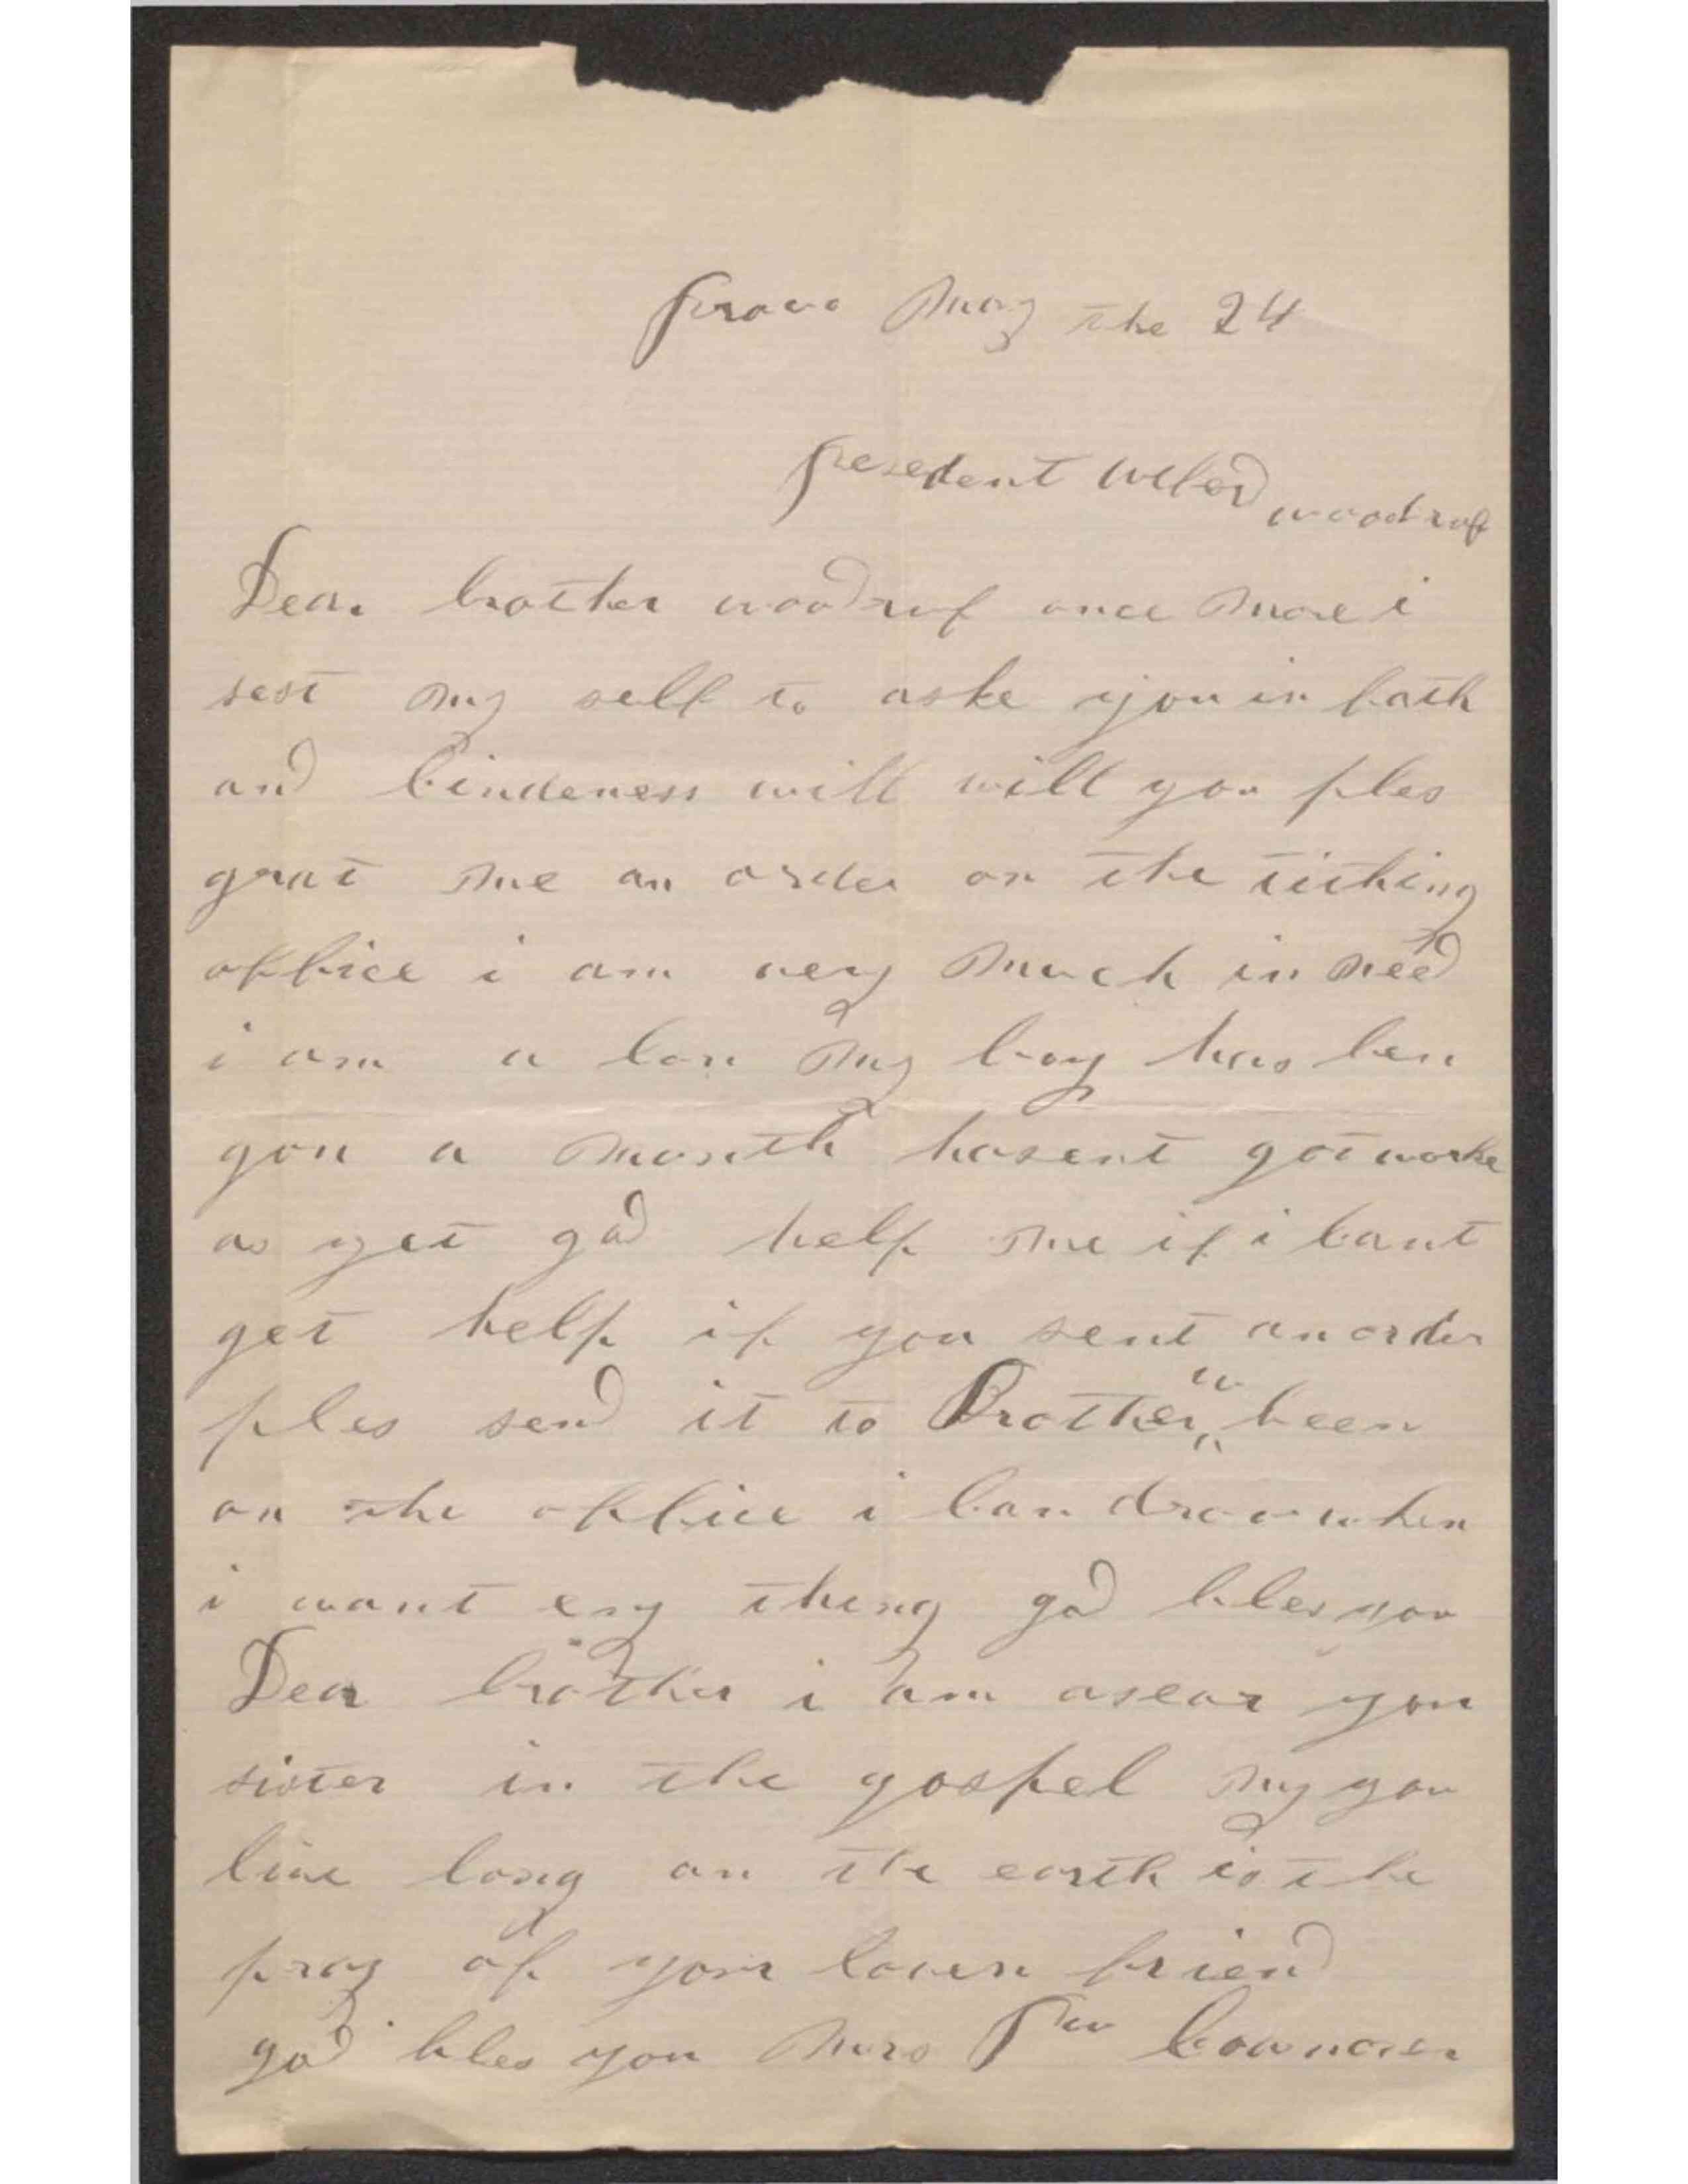 provo may the 24
presedent Wilford
woodruf
Dear brother woodruf once more i
sest my self to aske you in fath
and kindeness will will you ples
grat me an order on the tithing
office i am very much in need
i am a lon my boy has ben
gon a month hasent got worke
as yet god help me if i cant
get help if you sent an order
ples send it to Brother been
on the office i can draw when
i want eny thing god bles you
Dear brother i am as ear you
sister in the gospel my you
live long on the earth is the
pray of your loven friend
god bles you Mrs